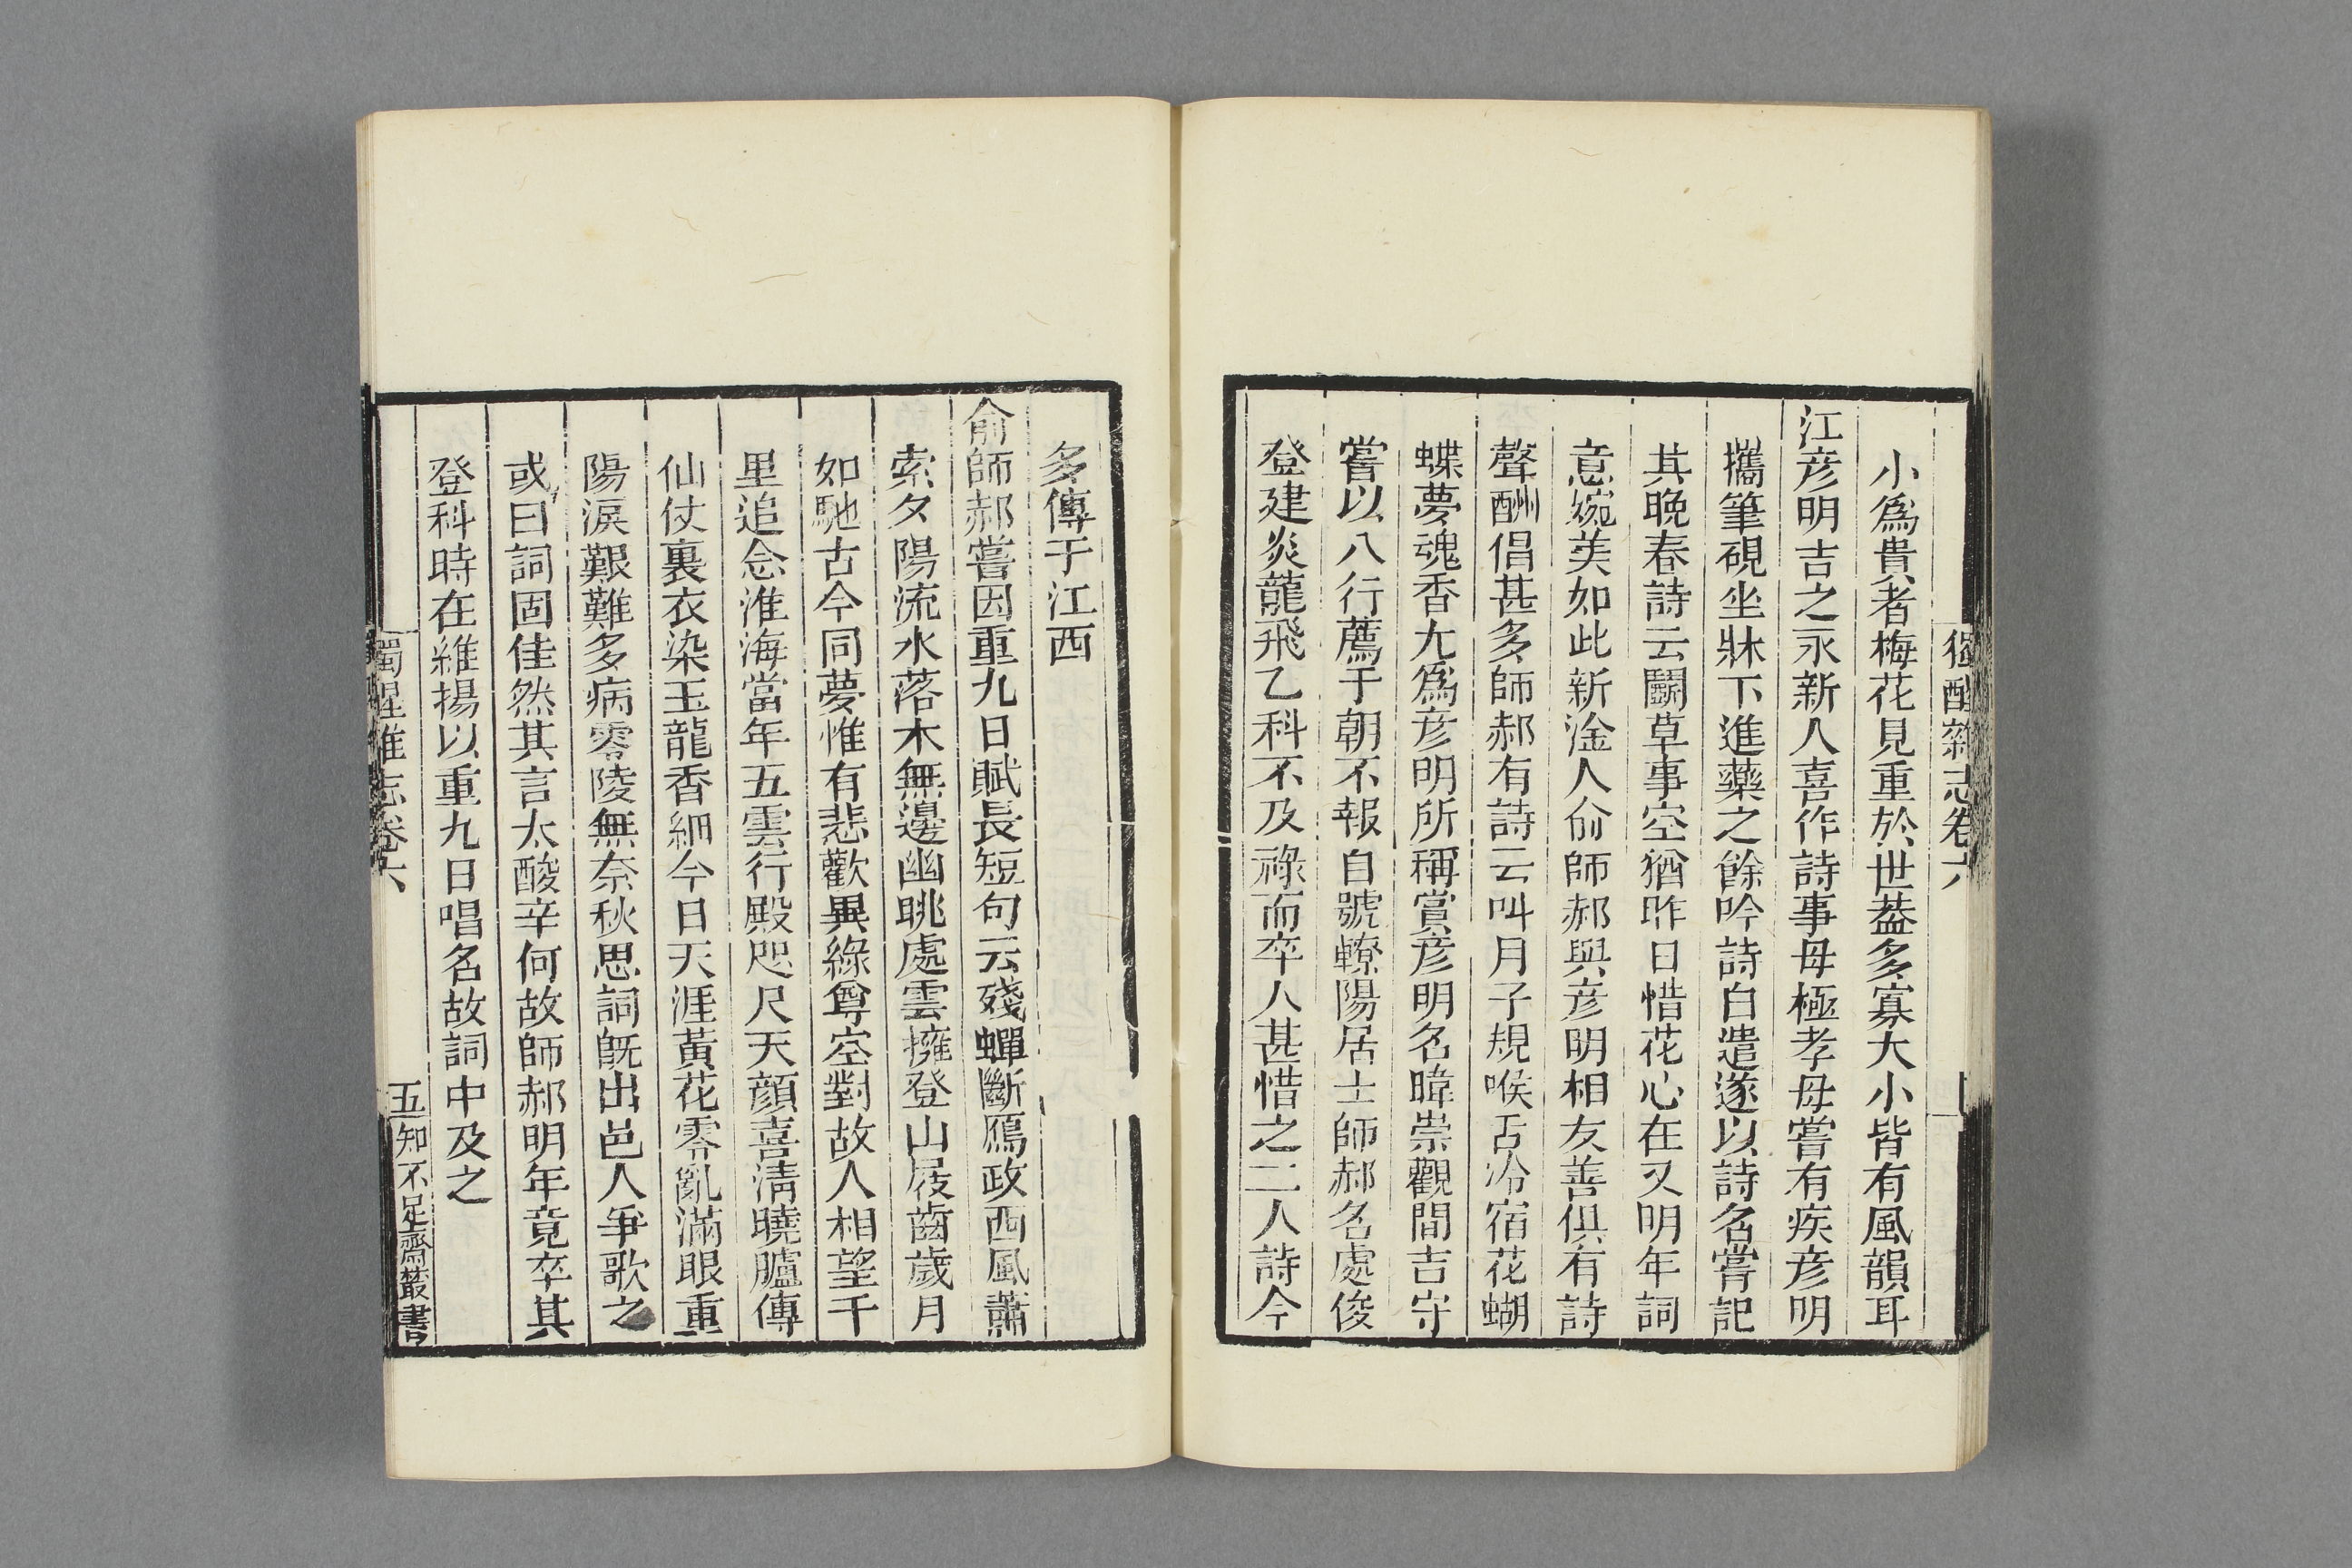 獨醒雜志卷六
小爲貴者梅花見重於世葢多寡大小皆有風韻耳
江彦明吉之永新人喜作詩事母極孝母嘗有疾彦明
攜筆硯坐牀下進藥之餘吟詩自遣遂以詩名嘗記
其晩春詩云鬬草事空猶昨日惜花心在又明年詞
意婉美如此新淦人俞師郝與彦明相友善俱有詩
聲酬倡甚多師郝有詩云叫月子規喉舌冷宿花蝴
蝶夢魂香尢爲彦明所稱賞彦明名暐崇觀間吉守
嘗以八行薦于朝不報自號轑陽居士師郝名處俊
登建炎龍飛乙科不及祿而卒人甚惜之二人詩今
多傳于江西
俞師郝嘗因重九日賦長短句云殘蟬斷鴈政西風蕭
索夕陽流水落木無邊幽眺處雲擁登山屐齒歲月
如馳古今同夢惟有悲歡異綠尊空對故人相望千
里追念淮海當年五雲行殿咫尺天顔喜淸曉臚傳
仙仗裏衣染玉龍香細今日天涯黃花零亂滿眼重
陽淚艱難多病零陵無奈秋思詞旣出邑人爭歌之
或曰詞固佳然其言太酸辛何故師郝明年竟卒其
登科時在維揚以重九日唱名故詞中及之
獨醒雜志卷六
五
知不足齋叢書